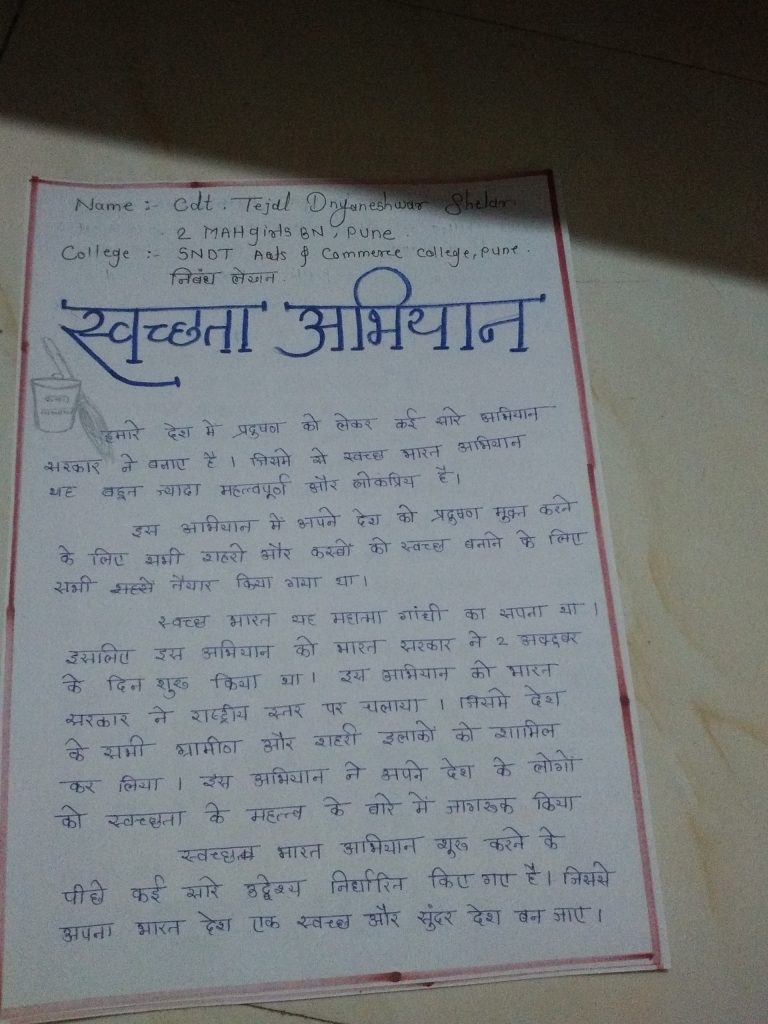 Name :- Cdt. Tejal Dnyaneshwar Shelar
2 MAH girls BN, Pune.
College :- SNDT Arts & Commerce College, Pune.
निबंध लेखन.
स्वच्छता अभियान
हमारे देश में प्रदूषण को लेकर कई सारे अभियान
सरकार ने बनाए है। जिसमे से स्वच्छ भारत अभियान
यह बहुत ज्यादा महत्वपूर्ण और लोकप्रिय है।
इस अभियान में अपने देश को प्रदूषण मुक्त करने
के लिए सभी शहरो और कस्बों को स्वच्छ बनाने के लिए
सभी तैयार किया गया था।
स्वच्छ भारत यह महात्मा गांधी का सपना था।
इसलिए इस अभियान को भारत सरकार ने 2 अक्टूबर
के दिन शुरू किया था। इस अभियान को भारत
सरकार ने राष्ट्रीय स्तर पर चलाया। जिसमे देश
के सभी ग्रामीण और शहरी इलाकों को शामिल
कर लिया। इस अभियान ने अपने देश के लोगों
को स्वच्छता के महत्त्व के बारे में जागरूक किया
स्वच्छता भारत अभियान शुरू करने के
पीछे कई सारे उद्देश्य निर्धारित किए गए है। जिससे
अपना भारत देश एक स्वच्छ और सुंदर देश बन जाए।